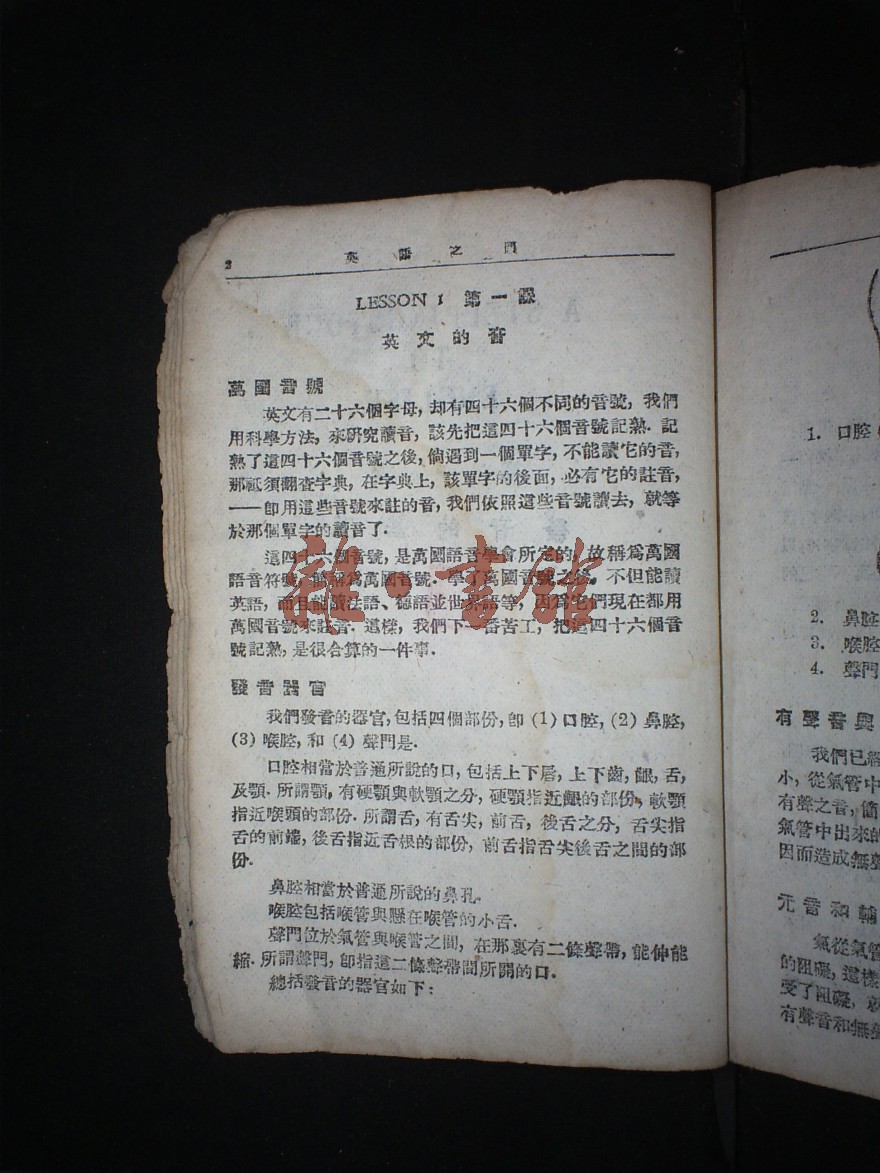 2 英語之門
LESSON 1 第一課
英文的音
萬國音號
英文有二十六個字母，却有四十六個不同的音號，我們
用科學方法，來研究讀音，該先把這四十六個音號記熟．記
熟了這四十六個音號之後，倘遇到一個單字，不能讀它的音，
那祗須翻查字典，在字典上，該單字的後面，必有它的註音，
——即用這些音號來註的音，我們依照這些音號讀去，就等
於那個單字的讀音了．
這四十六個音號，是萬國語音學會所定的，故稱爲萬國
語音符號，簡稱爲萬國音號．學了萬國音號之後，不但能讀
英語，而且能讀法語、德語並世界語等，因爲它們現在都用
萬國音號來註音．這樣，我們下一番苦工，把這四十六個音
號記熟，是很合算的一件事．
發音器官
我們發音的器官，包括四個部份，即 (1) 口腔，(2) 鼻腔，
(3) 喉腔，和 (4) 聲門是．
口腔相當於普通所說的口，包括上下唇，上下齒，齦，舌，
及顎．所謂顎，有硬顎與軟顎之分，硬顎指近齦的部份，軟顎
指近喉頭的部份．所謂舌，有舌尖，前舌，後舌之分，舌尖指
舌的前端，後舌指近舌根的部份，前舌指舌尖後舌之間的部
份．
鼻腔相當於普通所說的鼻孔．
喉腔包括喉管與懸在喉管的小舌．
聲門位於氣管與喉管之間，在那裏有二條聲帶，能伸能
縮．所謂聲門，即指這二條聲帶間所開的口．
總括發音的器官如下：
雜·書館
1. 口腔
2. 鼻腔
3. 喉腔
4. 聲門
有聲音與
我們已經
小，從氣管中
有聲之音，簡
氣管中出來的
因而造成無聲
元音和輔
氣從氣管
的阻礙，這樣
受了阻礙，就
有聲音和無聲